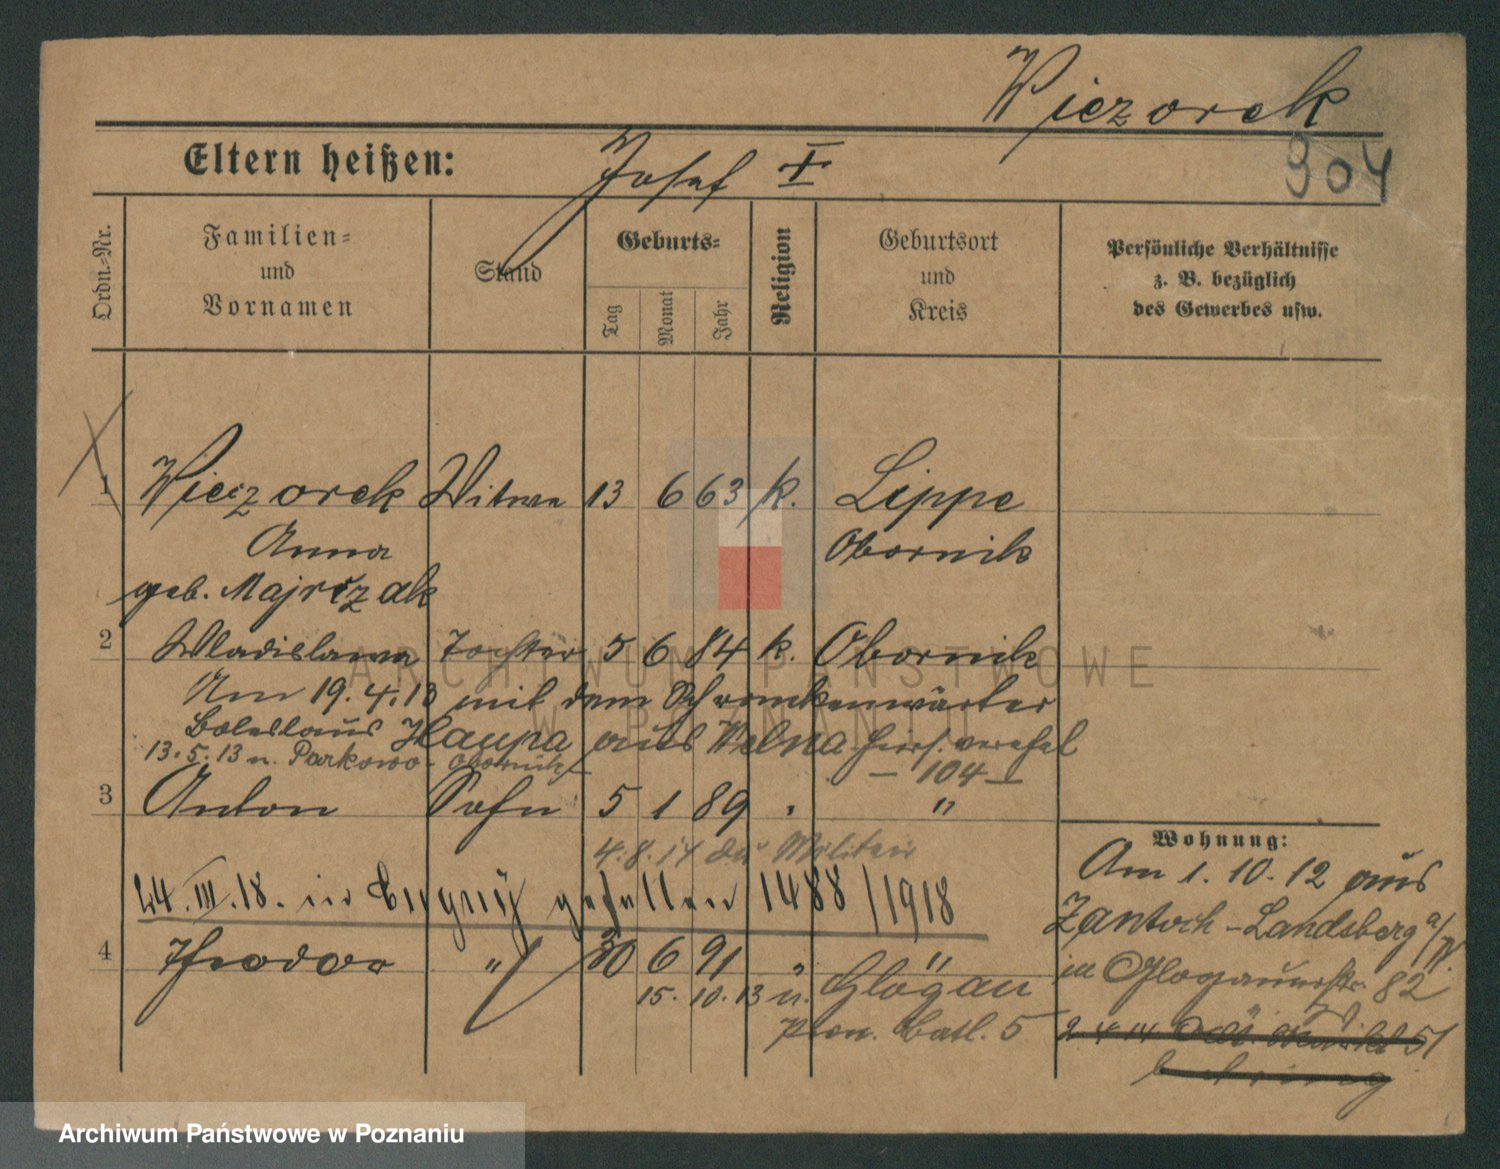 Wiezorek
Eltern heißen: Josef †
904
Ordn.-Nr.
Familien-
und
Vornamen
Stand
Geburts-
Tag
Monat
Jahr
Religion
Geburtsort
und
Kreis
Persönliche Verhältnisse
z. B. bezüglich
des Gewerbes usw.
1 Wieczorek Witwe 13 6 63 k. Lippe
Anna Obornik
geb. Majrczak
2 Wladislawa Tochter 5 6 84 k. Obornik
Am 19.4.13 mit dem Schrankenwärter
Boleslaus Haupa aus Welna hiers. verehel
13.5.13 n. Parkowo - Obornik
– 104 –
3 Anton Sohn 5 1 89 "
4.8.14 Militair
24.III.18. in gefallen 1488/1918
4 Theodor " 30 6 91 " "
15. 10. 13 n. Glogau
Pion. Batl. 5
Wohnung:
Am 1. 10. 12 aus
Zantoch-Landsberg a/W.
in Glogauerstr. 82
2 4 14 51
ARCHIWUM PAŃSTWOWE
W POZNANIU
Archiwum Państwowe w Poznaniu